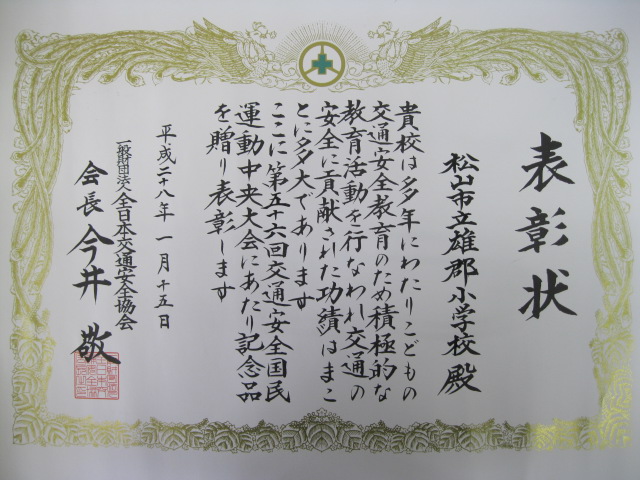 表彰状
松山市立雄郡小学校殿
貴校は多年にわたりこどもの
交通安全教育のため積極的な
教育活動を行なわれ交通の
安全に貢献された功績はまこ
とに多大であります
ここに第五十六回交通安全国民
運動中央大会にあたり記念品
を贈り表彰します
平成二十八年一月十五日
一般財団法人全日本交通安全協会
会長今井敬